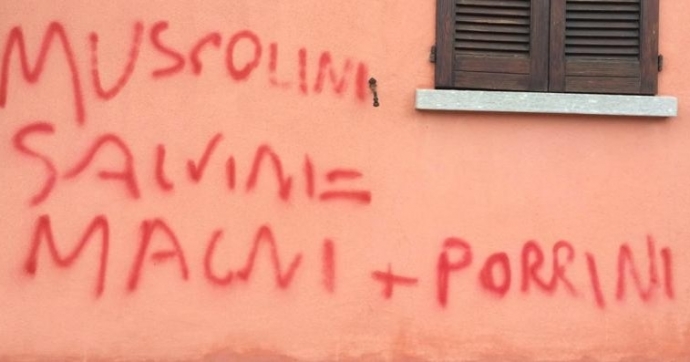 MUSSOLINI
SALVINI=
MAGNI + PORRINI